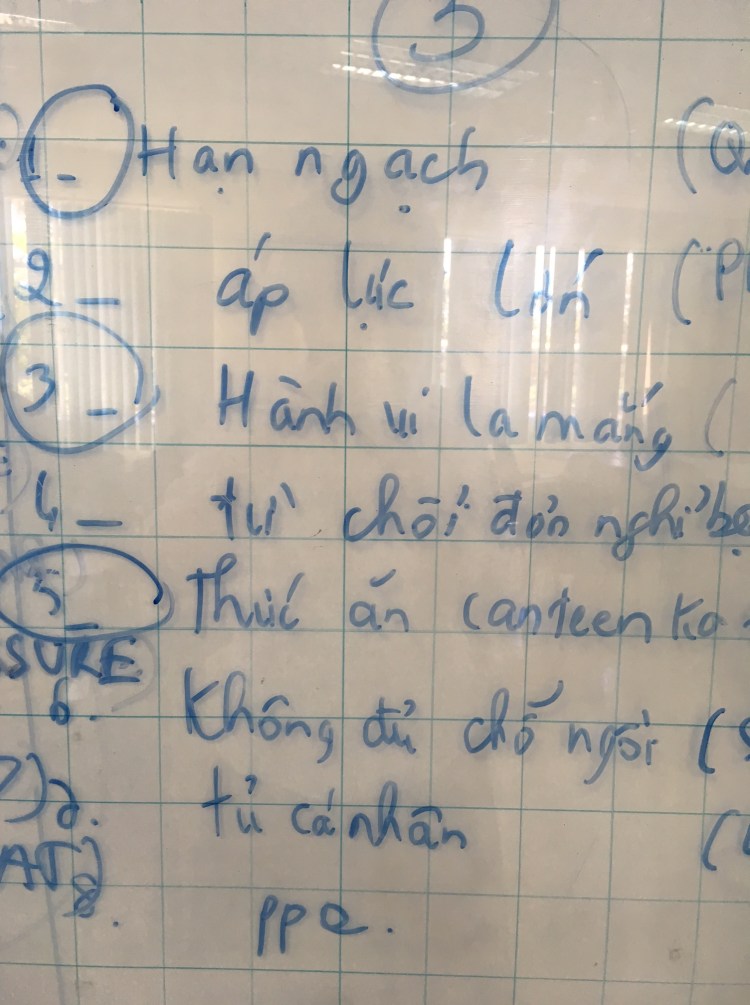 3
1_ Hạn ngạch (Q
2_ áp lực lớn (P
3_ Hành vi la mắng (
4_ từ chối đơn nghỉ bệ
5_ Thức ăn canteen Ko
SURE
6. Không đủ chỗ ngồi (
tủ cá nhân (
AT)
8. PPE.